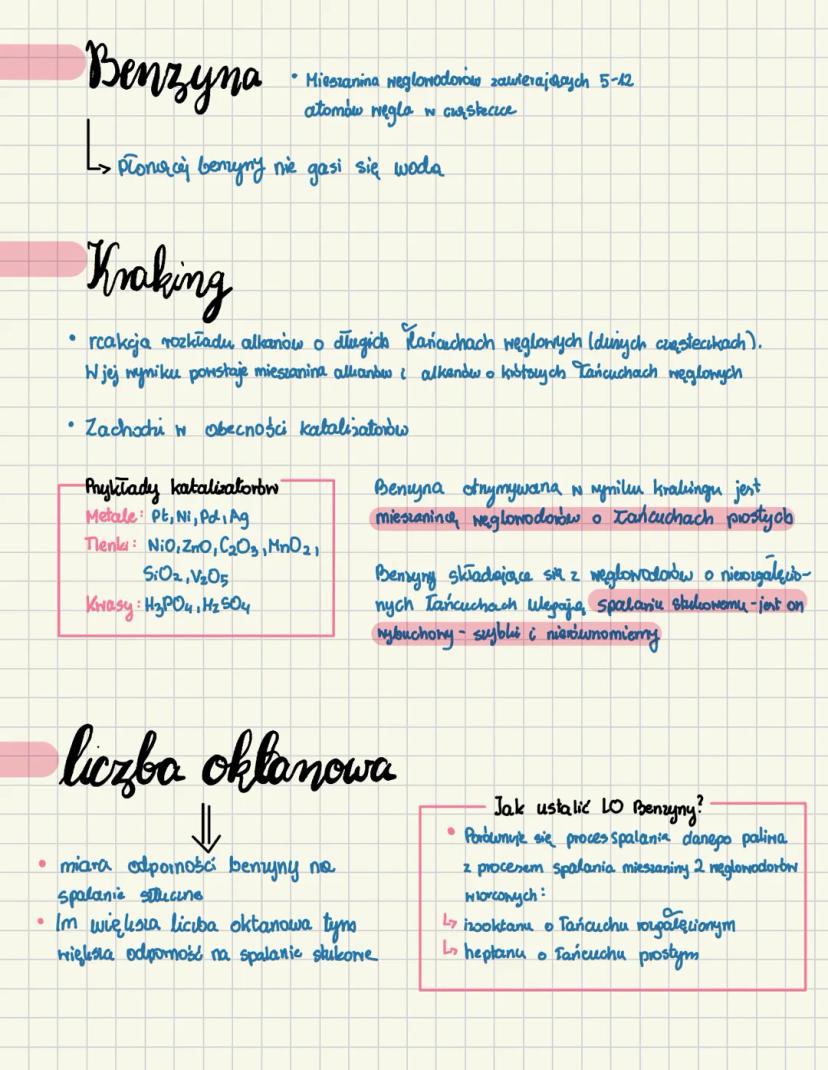 Benzyna
• Mieszanina węglowodorów zawierających 5-12
atomów węgla w cząsteczce
↳ płonącej benzyny nie gasi się wodą
Kraking
• reakcja rozkładu alkanów o długich łańcuchach węglowych (dużych cząsteczkach).
W jej wyniku powstaje mieszanina alkanów i alkenów o krótszych łańcuchach węglowych
• Zachodzi w obecności katalizatorów
Przykłady katalizatorów
Metale: Pt, Ni, Pd, Ag
Tlenki: NiO, ZnO, C₂O₃, MnO₂,
SiO₂, V₂O₅
Kwasy: H₃PO₄, H₂SO₄
Benzyna otrzymywana w wyniku krakingu jest
mieszaniną węglowodorów o łańcuchach prostych
Benzyny składające się z węglowodorów o nierozgałęzio-
nych łańcuchach ulegają spalaniu stukowemu - jest on
wybuchowy - szybki i nierównomierny
liczba oktanowa
• miara odporności benzyny na
spalanie
• Im większa liczba oktanowa tym
większa odporność na spalanie stukowe
Jak ustalić LO Benzyny?
• Porównuje się proces spalania danego paliwa
z procesem spalania mieszaniny 2 węglowodorów
wzorcowych:
↳ izooktanu o łańcuchu rozgałęzionym
↳ heptanu o łańcuchu prostym